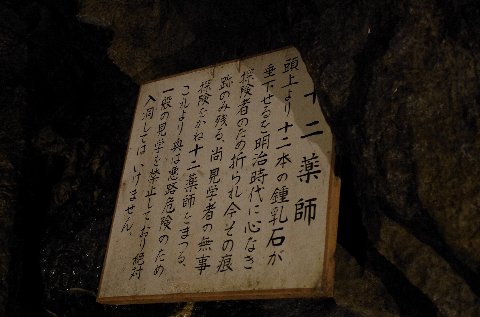 十二薬師
頭上より十二本の鍾乳石が
垂下せるを明治時代に心なき
探険者のため折られ今その痕
跡のみ残る、尚見学者の無事
探険をかね十二薬師をまつる、
これより奥は悪路危険のため
一般の見学を禁止しており絶対
入洞してはいけません